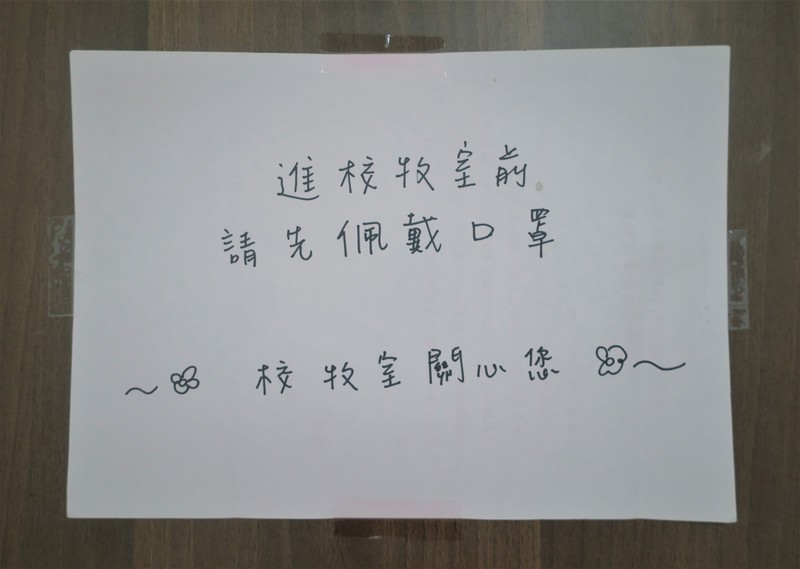 進校牧室前
請先佩戴口罩
～ 校牧室關心您 ～